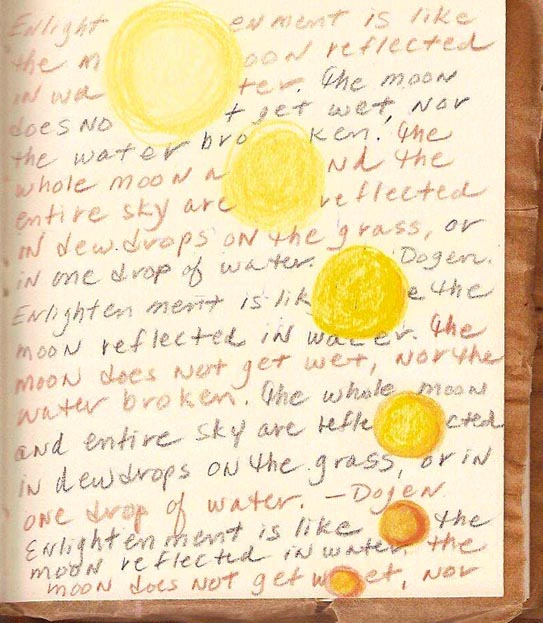 Enlight enment is like
the m oon reflected
in wa ter. The moon
does no t get wet, nor
the water bro ken. The
whole moon a nd the
entire sky are reflected
in dewdrops on the grass, or
in one drop of water. Dogen.
Enlighten ment is lik e the
moon reflected in water. The
moon does not get wet, nor the
water broken. The whole moon
and entire sky are refle cted
in dewdrops on the grass, or in
one drop of water. — Dogen
Enlightenment is like the
moon reflected in water. The
moon does not get w et, nor